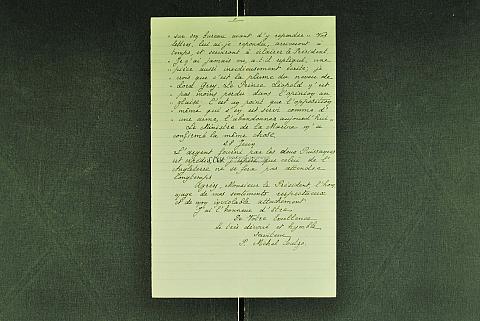 " sur son bureau avant d'y repondre. " Vos
" lettres, lui ai-je repondu, arriveront à
" temps, et serviront à éclairer le Président.
" Je n'ai jamais vu, a-t-il repliqué, une
" pièce aussi insidieusement écrite; je
" crois que c'est la plume du neveu de
" Lord Grey. Le Prince Léopold n'est
" pas moins perdu dans l'opinion an
" glaise. C'est au point que l'opposition
" même qui s'en est servie comme d'
" une arme, l'abandonne aujourd'hui."
Le Ministre de la Marine m'a
confirmé la même chose.
L'argent fourni par les deux Puissances
est expédié, j'espère que celui de l'
Angleterre ne se fera pas attendre
longtemps.
Agréez, Monsieur le Président, l'hom
mage de mes sentiments respectueux
et de mon inviolable attachement.
J'ai l'honneur d'être
De Votre Excellence
Le très dévoué et humble
Serviteur